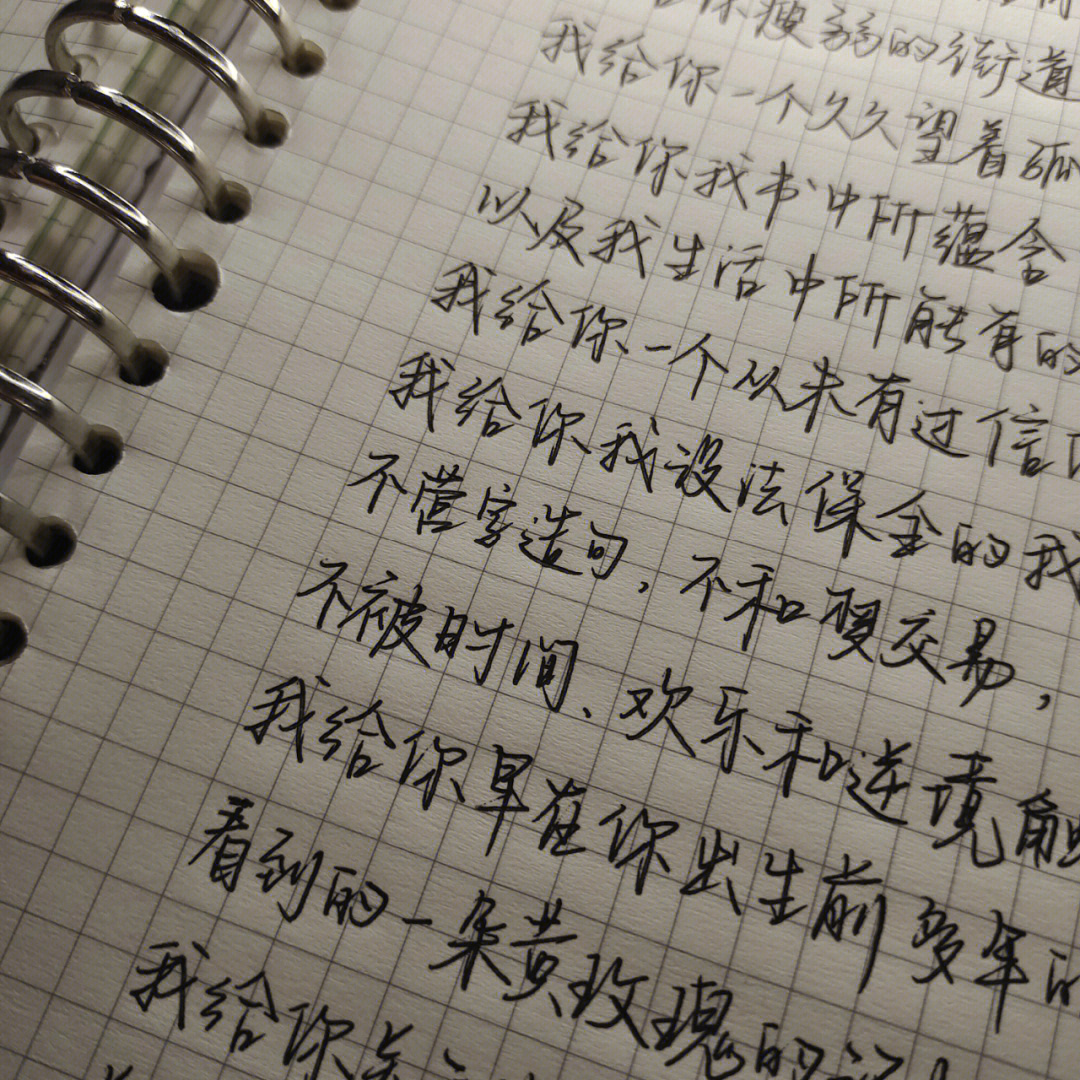 你瘦弱的街道
我给你一个久久望着孤
我给你我书中所蕴含
以及我生活中所能有的
我给你一个从未有过信
我给你我设法保全的我
不营字造句，不和梦交易，
不被时间、欢乐和逆境触
我给你早在你出生前多年的
看到的一朵黄玫瑰的记
我给你关